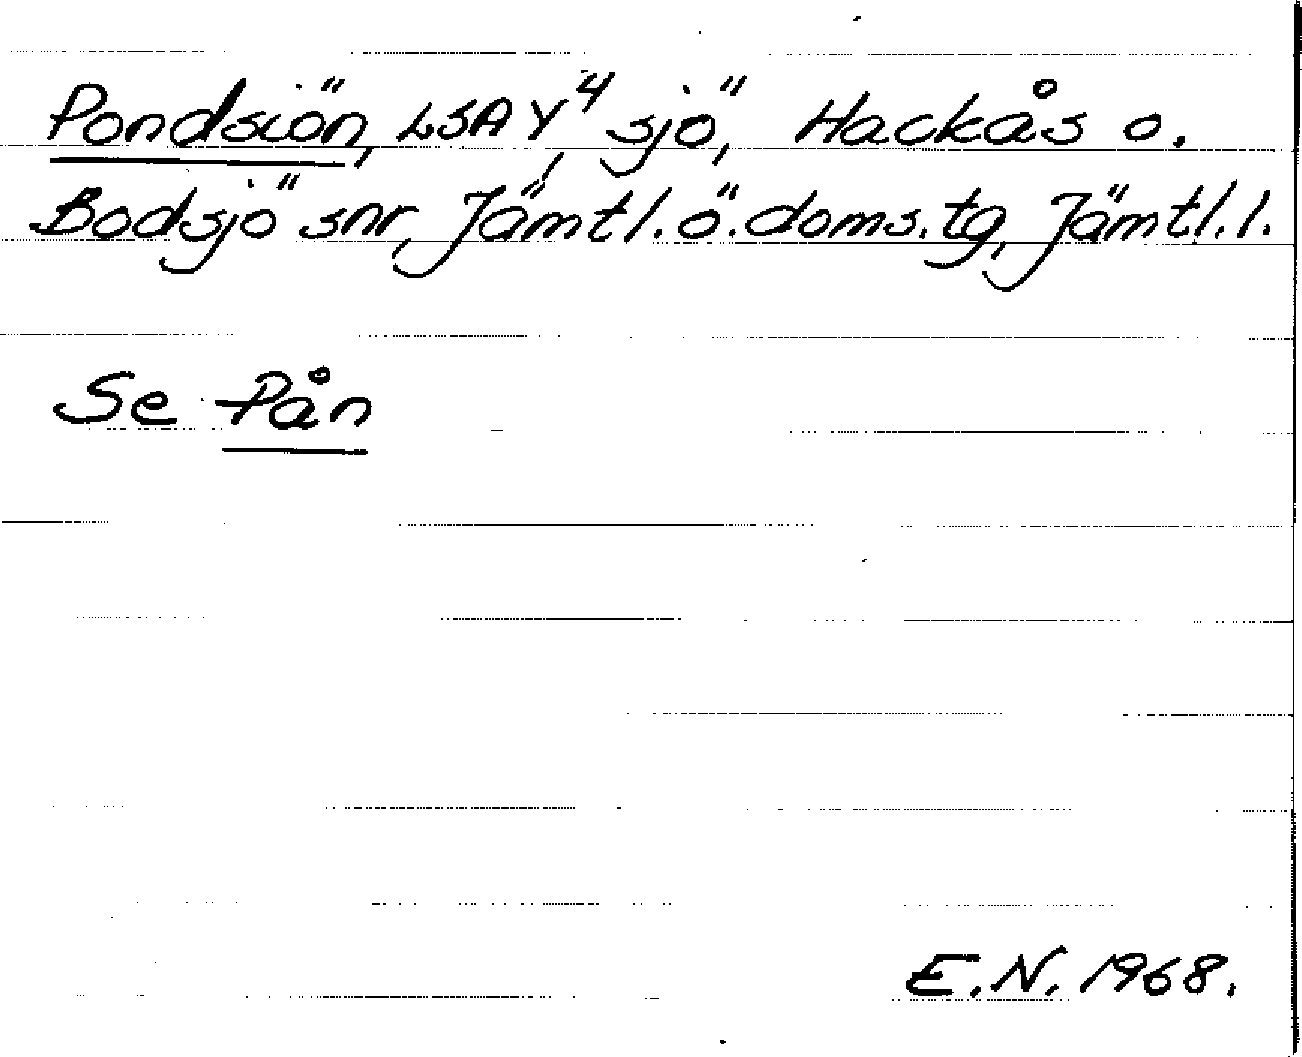 Pondsiön, LSA Y⁴, sjö, Hackås o.
Bodsjö snr, Jämtl. ö. doms. tg, Jämtl. l.
Se Pån
E.N. 1968.